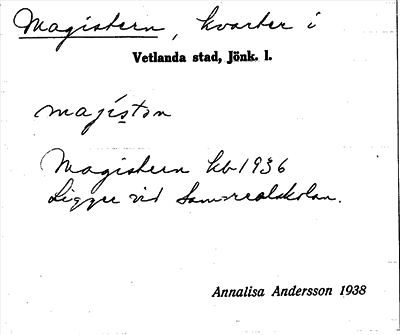 Magistern, kvarter i
Vetlanda stad, Jönk. l.
magíston
Magistern kb 1936
Ligger vid Samrealskolan.
Annalisa Andersson 1938